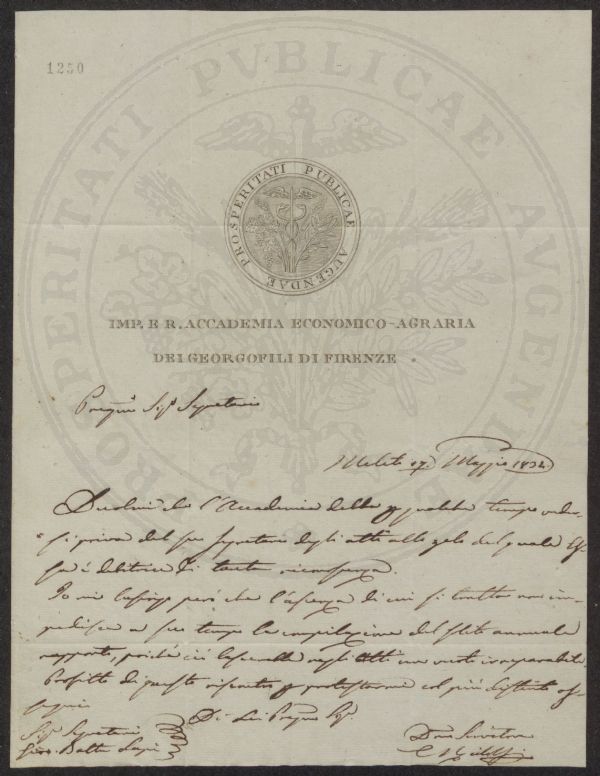 1250
PROSPERITATI PUBLICAE AUGENDAE
PROSPERITATI PVBLICAE AVGENDAE
IMP. E R. ACCADEMIA ECONOMICO-AGRARIA
DEI GEORGOFILI DI FIRENZE
Sigr Segretario
Meleto 17. Maggio 1834.
Duolmi che l'Accademia debba p qualche tempo
si priva del suo Segretario degli atti allo zelo del quale Es-
sa è debitrice di tanta riconoscenza.
Io mi lusingo però che l'assenza di cui si tratta non im-
pedisca a suo tempo la compilazione del solito annuale
rapporto, poiché ciò lascerebbe negli Atti un vuoto irreparabile.
Profitto di questo riscontro p protestarmi col più distinto os-
sequio
Di Lei
Sigr Segretario
Devo Servitore